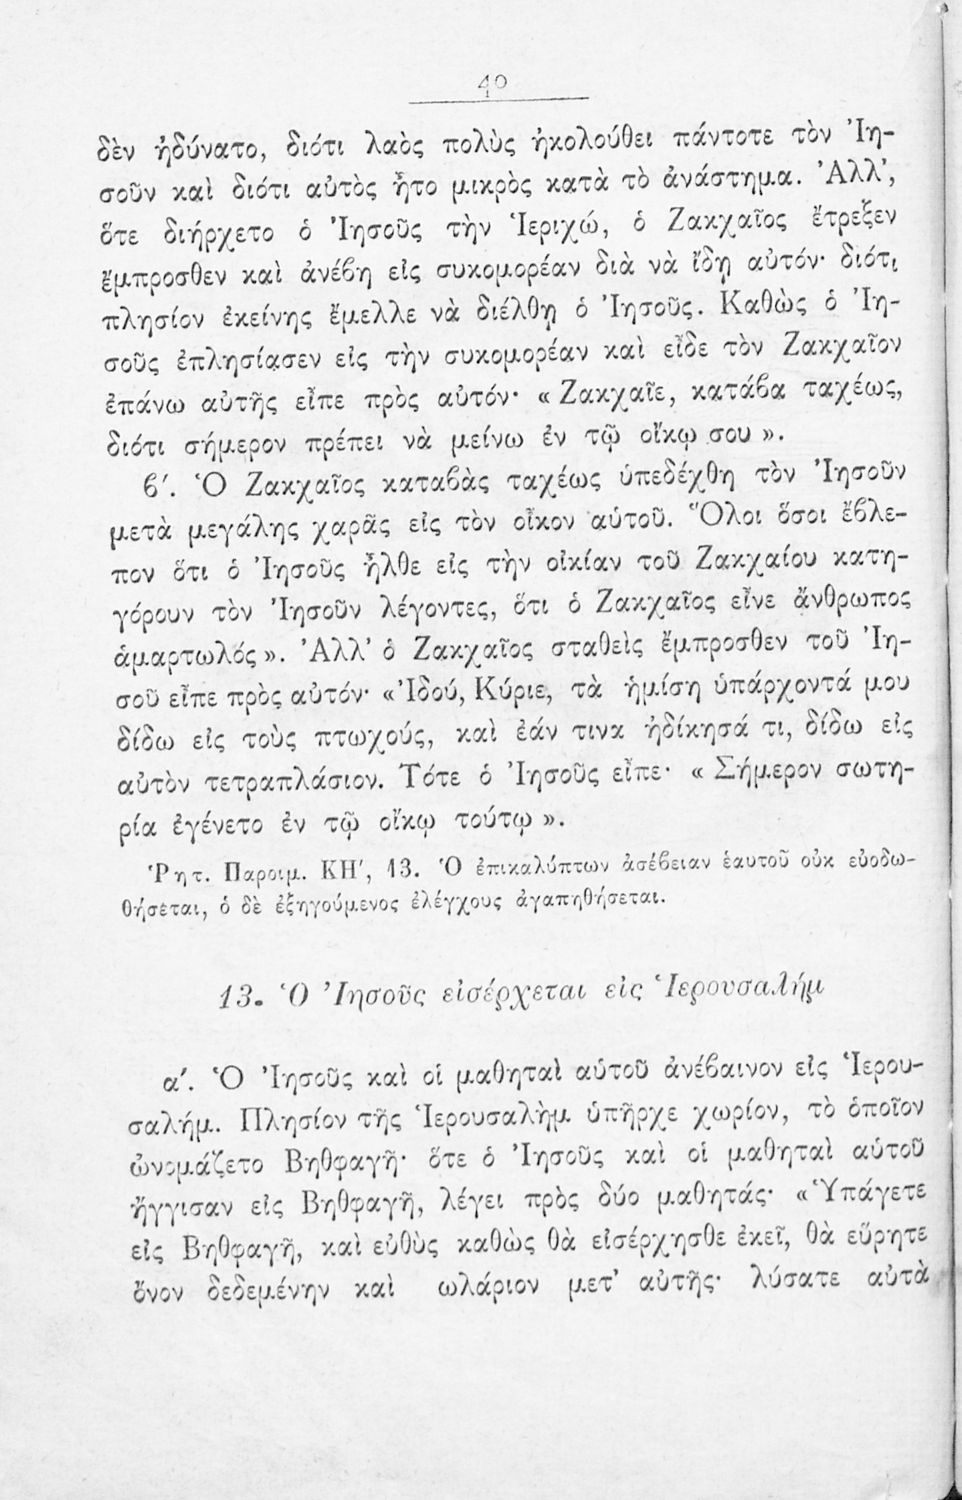 40
δὲν ἠδύνατο, διότι λαὸς πολὺς ἠκολούθει πάντοτε τὸν Ἰη-
σοῦν καὶ διότι αὐτὸς ἦτο μικρὸς κατὰ τὸ ἀνάστημα. Ἀλλ',
ὅτε διήρχετο ὁ Ἰησοῦς τὴν Ἱεριχώ, ὁ Ζακχαῖος ἔτρεξεν
ἔμπροσθεν καὶ ἀνέβη εἰς συκομορέαν διὰ νὰ ἴδῃ αὐτόν· διότι
πλησίον ἐκείνης ἔμελλε νὰ διέλθῃ ὁ Ἰησοῦς. Καθὼς ὁ Ἰη-
σοῦς ἐπλησίασεν εἰς τὴν συκομορέαν καὶ εἶδε τὸν Ζακχαῖον
ἐπάνω αὐτῆς εἶπε πρὸς αὐτόν· «Ζακχαῖε, κατάβα ταχέως,
διότι σήμερον πρέπει νὰ μείνω ἐν τῷ οἴκῳ σου».
β'. Ὁ Ζακχαῖος καταβὰς ταχέως ὑπεδέχθη τὸν Ἰησοῦν
μετὰ μεγάλης χαρᾶς εἰς τὸν οἶκον αὑτοῦ. Ὅλοι ὅσοι ἔβλε-
πον ὅτι ὁ Ἰησοῦς ἦλθε εἰς τὴν οἰκίαν τοῦ Ζακχαίου κατη-
γόρουν τὸν Ἰησοῦν λέγοντες, ὅτι ὁ Ζακχαῖος εἶνε ἄνθρωπος
ἁμαρτωλός». Ἀλλ' ὁ Ζακχαῖος σταθεὶς ἔμπροσθεν τοῦ Ἰη-
σοῦ εἶπε πρὸς αὐτόν· «Ἰδού, Κύριε, τὰ ἡμίση ὑπάρχοντά μου
δίδω εἰς τοὺς πτωχούς, καὶ ἐάν τινα ἠδίκησά τι, δίδω εἰς
αὐτὸν τετραπλάσιον. Τότε ὁ Ἰησοῦς εἶπε· «Σήμερον σωτη-
ρία ἐγένετο ἐν τῷ οἴκῳ τούτῳ».
Ῥητ. Παροιμ. ΚΗ', 13. Ὁ ἐπικαλύπτων ἀσέβειαν ἑαυτοῦ οὐκ εὐοδω-
θήσεται, ὁ δὲ ἐξηγούμενος ἐλέγχους ἀγαπηθήσεται.
13. Ὁ Ἰησοῦς εἰσέρχεται εἰς Ἱερουσαλήμ
α'. Ὁ Ἰησοῦς καὶ οἱ μαθηταὶ αὑτοῦ ἀνέβαινον εἰς Ἱερου-
σαλήμ. Πλησίον τῆς Ἱερουσαλὴμ ὑπῆρχε χωρίον, τὸ ὁποῖον
ὠνομάζετο Βηθφαγῆ· ὅτε ὁ Ἰησοῦς καὶ οἱ μαθηταὶ αὑτοῦ
ἤγγισαν εἰς Βηθφαγῆ, λέγει πρὸς δύο μαθητάς· «Ὑπάγετε
εἰς Βηθφαγῆ, καὶ εὐθὺς καθὼς θὰ εἰσέρχησθε ἐκεῖ, θὰ εὕρητε
ὄνον δεδεμένην καὶ ωλάριον μετ' αὐτῆς· λύσατε αὐτὰ